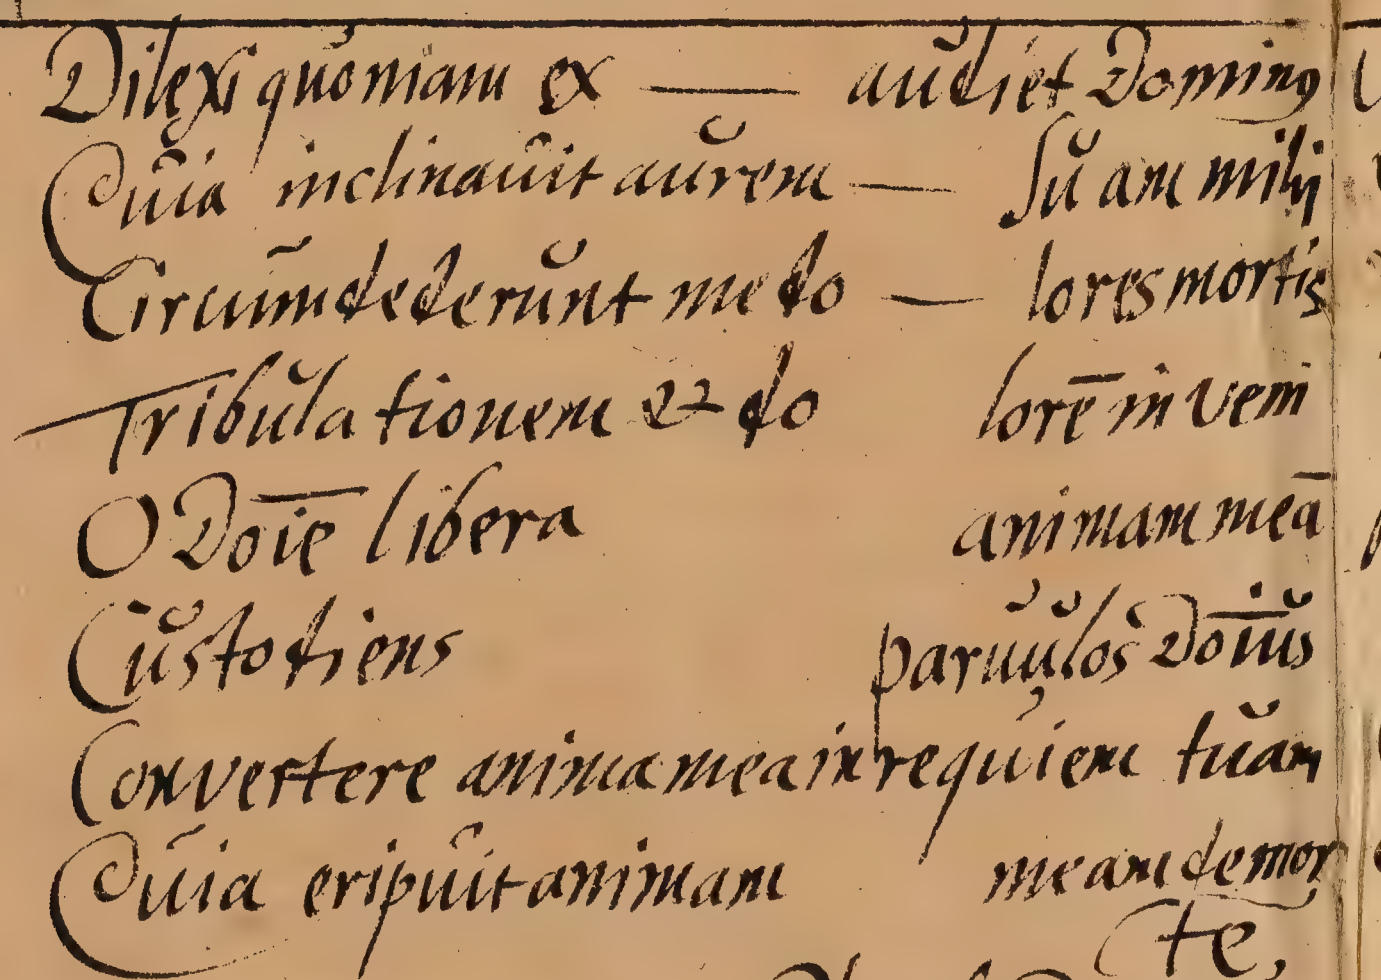 Dilexi quŏniam ex — aŭdiet Dominus
Quia inclinaŭit aŭrem — Sŭam mihi
Circum̃dederŭnt me do — lores mortis
Tribŭlationem et do lorē inveni
O Doīe libera animam meā
Cŭstodiens parŭŭlos Doīŭs
Convertere anima mea in requiem tŭam
Quia eripŭit animam meam de mor
te,